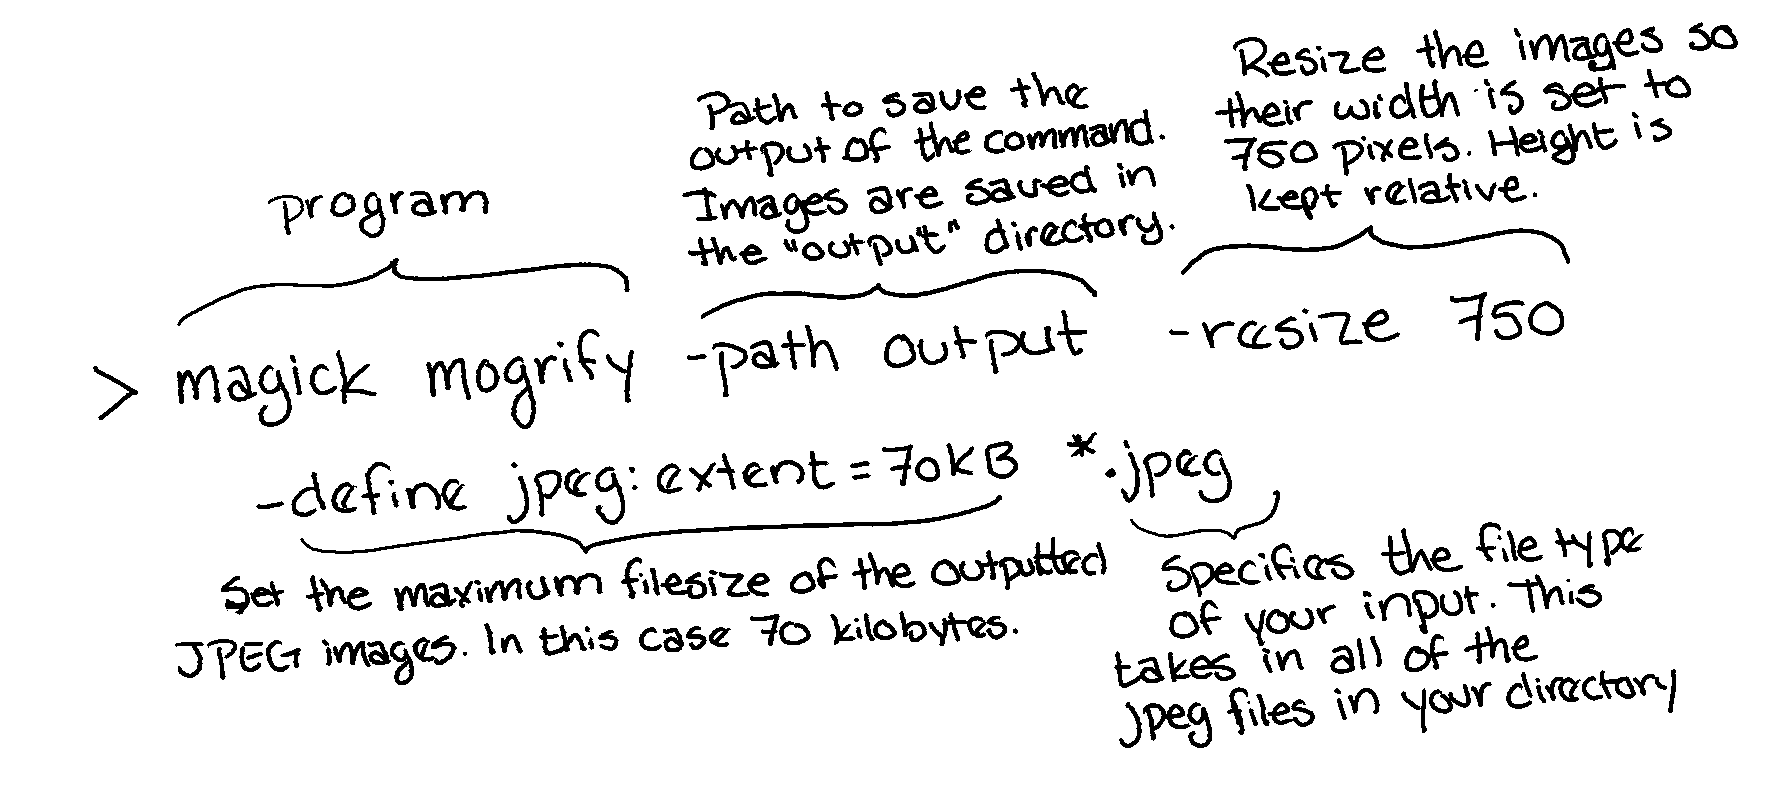 program
Path to save the
output of the command.
Images are saved in
the "output" directory.
Resize the images so
their width is set to
750 pixels. Height is
kept relative.
> magick mogrify -path output -resize 750
-define jpeg:extent=70kB *.jpeg
Set the maximum filesize of the outputted
JPEG images. In this case 70 kilobytes.
Specifies the file type
of your input. This
takes in all of the
jpeg files in your directory